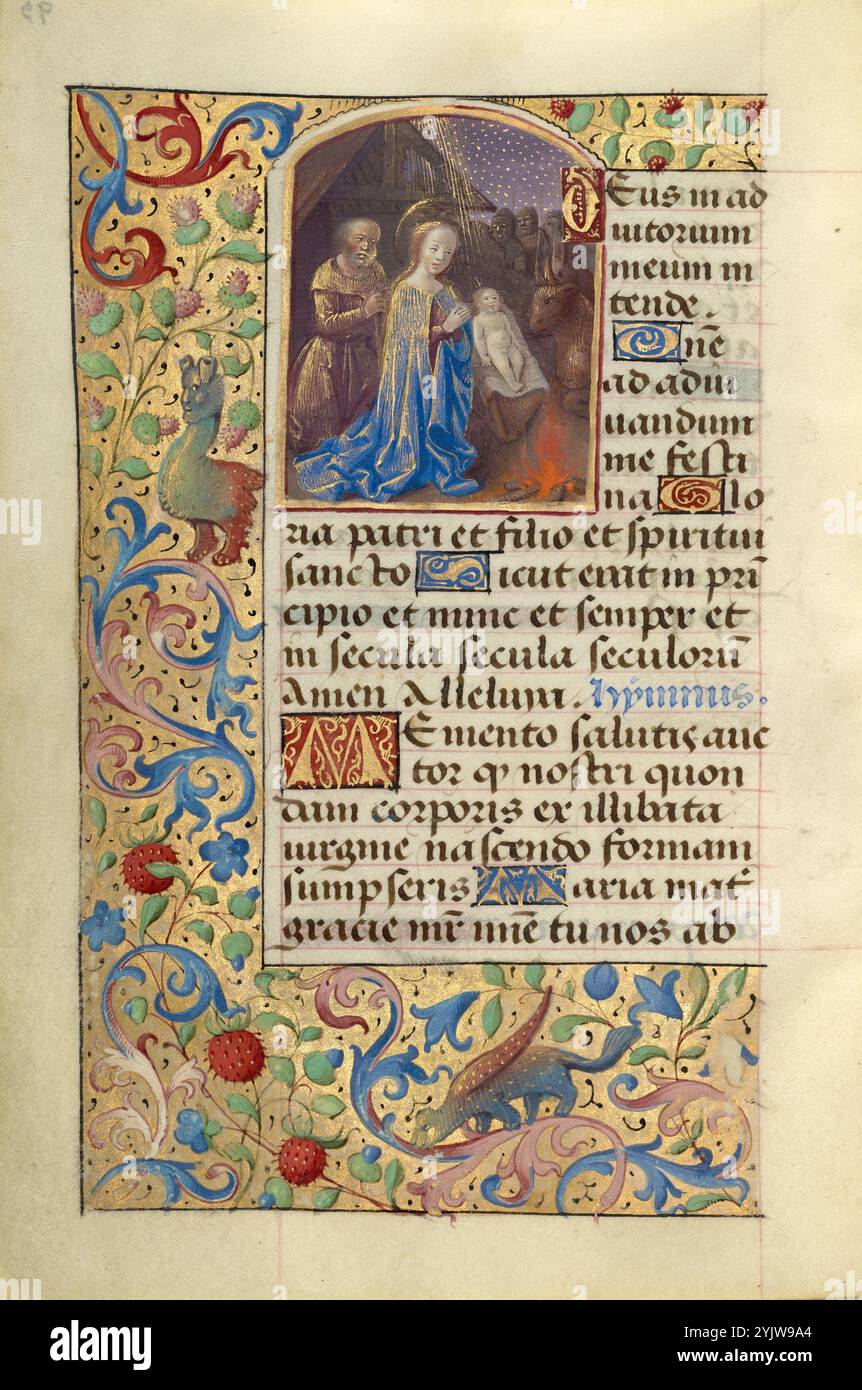 95
Deus in ad
iutorium
meum in
tende.
Dn̄e
ad adiu
uandum
me festi
na Glo
ria patri et filio et spiritui
sancto Sicut erat in prin
cipio et nunc et semper et
in secula secula seculorū
Amen Alleluya. hymnus.
Memento salutis auc
tor ꝙ nostri quon
dam corporis ex illibata
uirgine nascendo formam
sumpseris Maria mat̄
gracie mr̄ mīe tu nos ab
alamy
Image ID: 2YJW9A4
www.alamy.com